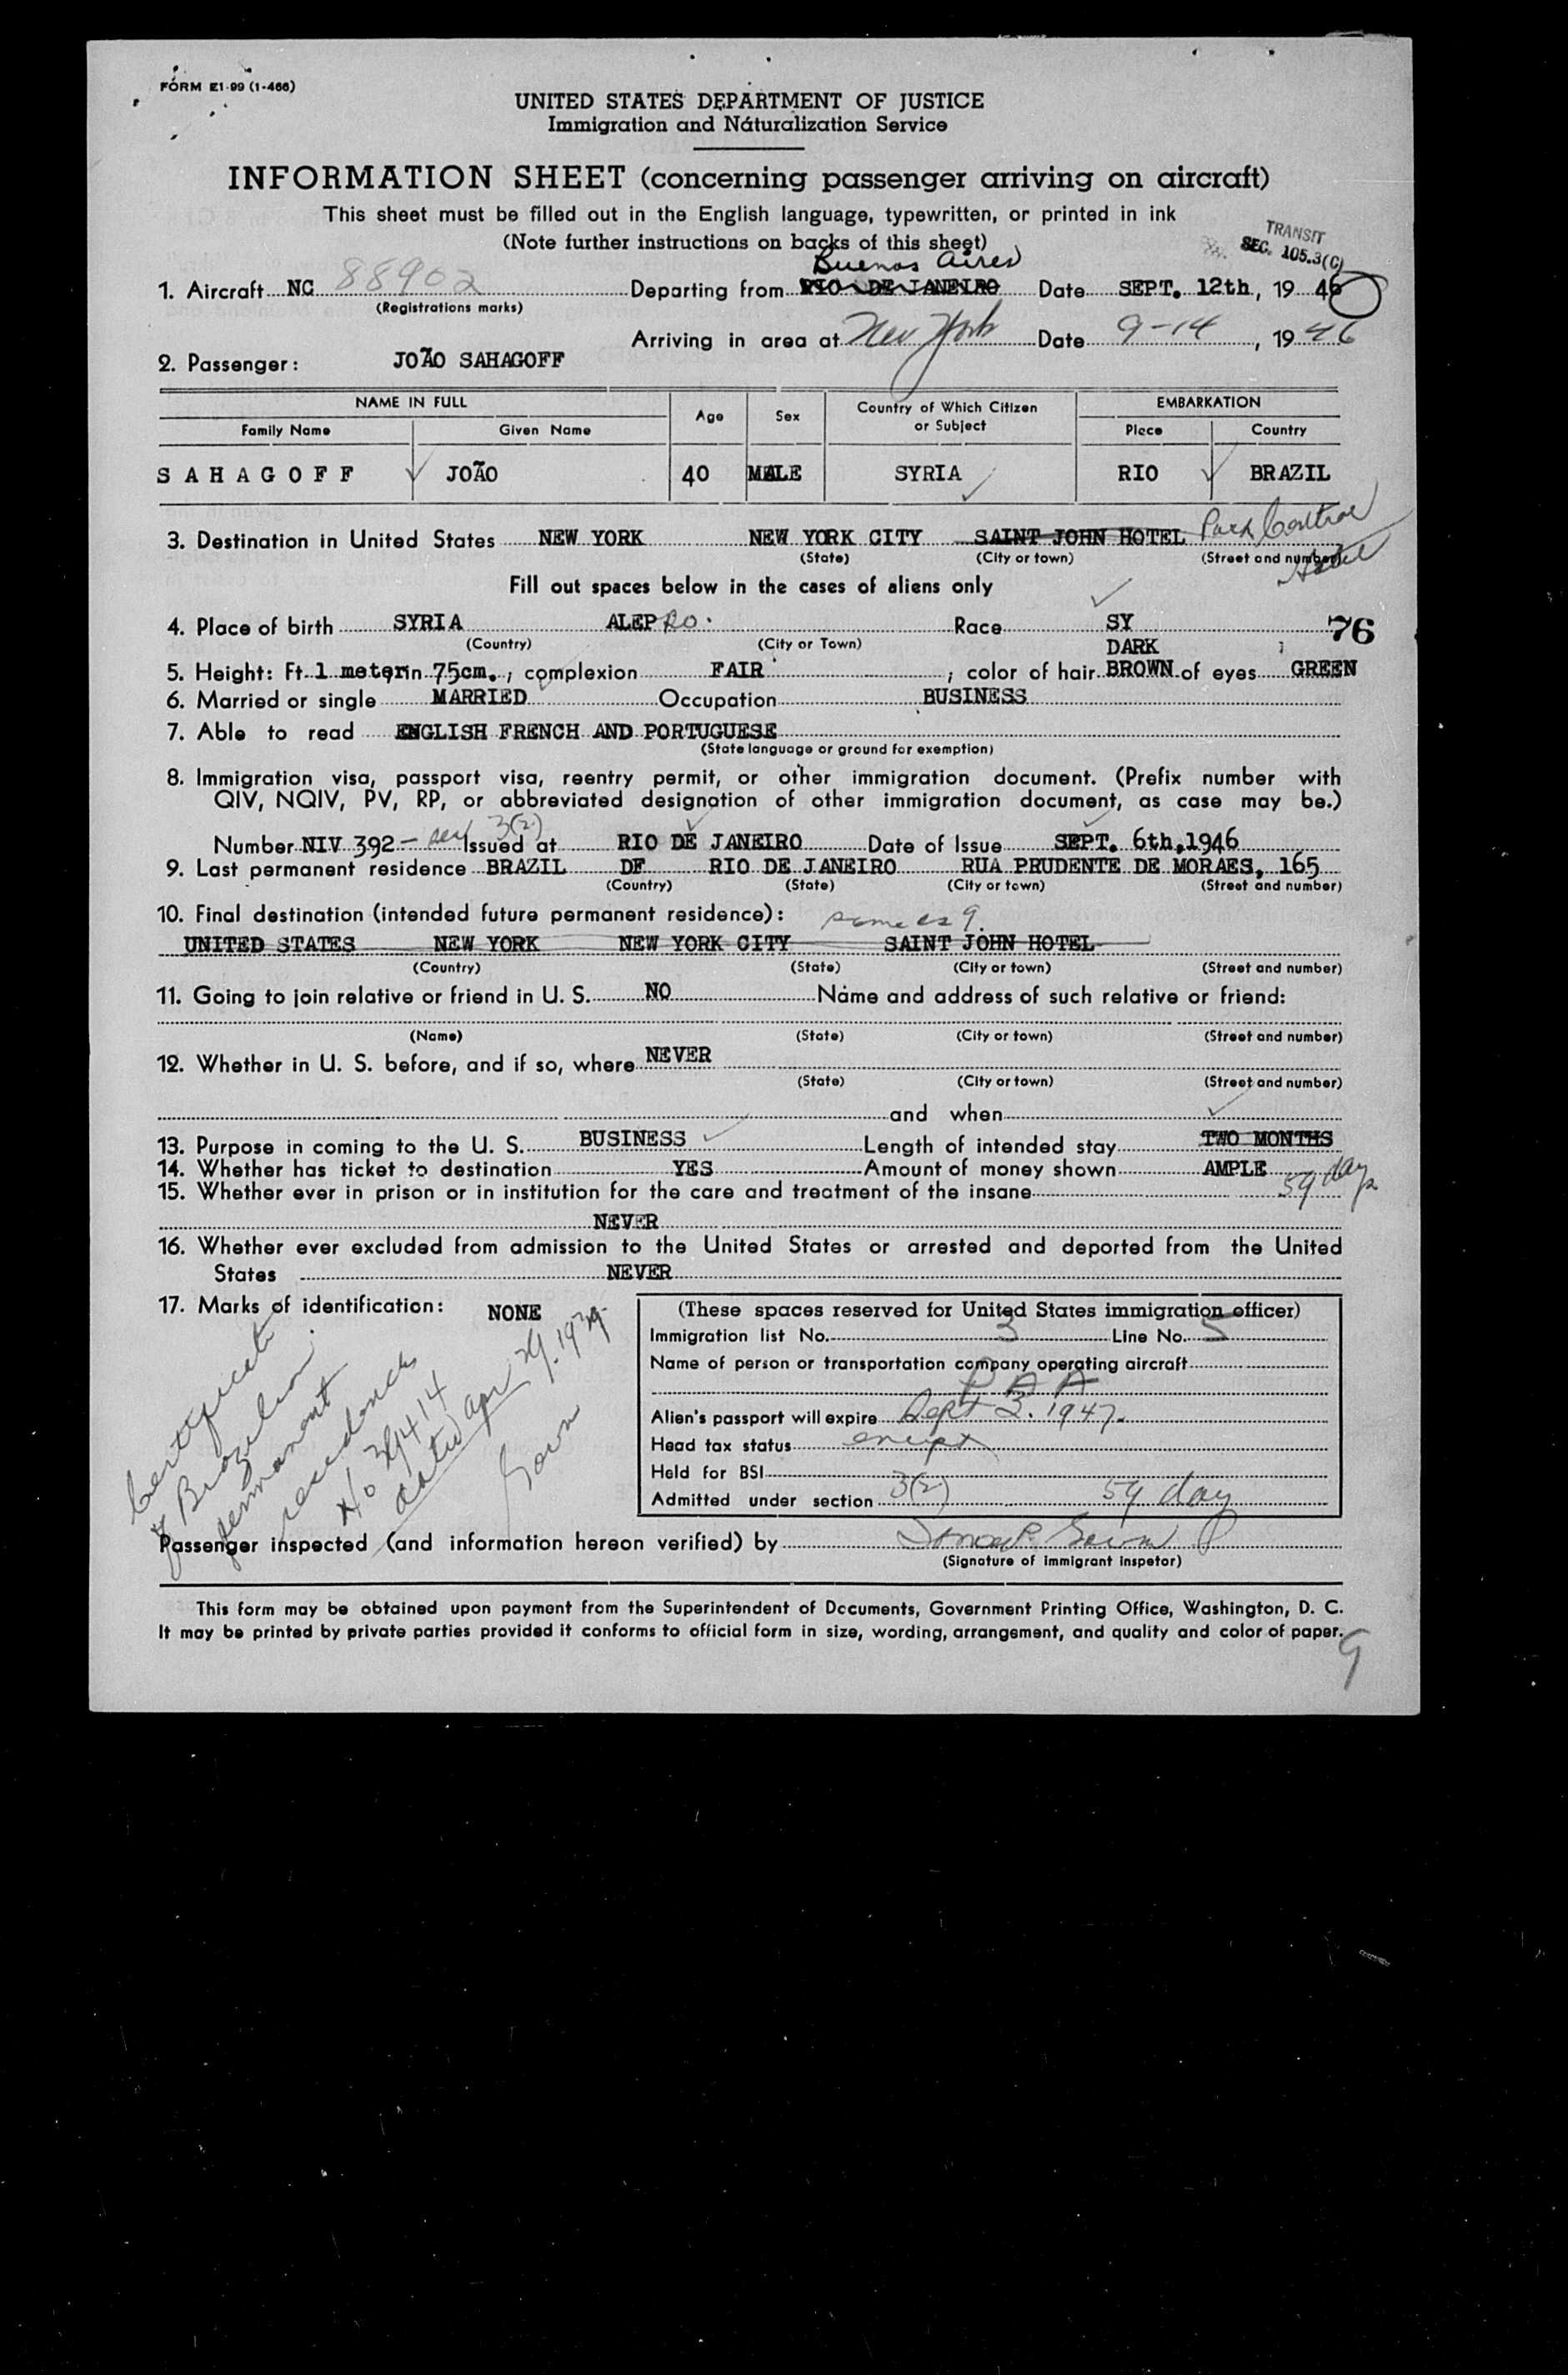 FORM E1-99 (1-466)
UNITED STATES DEPARTMENT OF JUSTICE
Immigration and Naturalization Service
INFORMATION SHEET (concerning passenger arriving on aircraft)
This sheet must be filled out in the English language, typewritten, or printed in ink
(Note further instructions on backs of this sheet)
TRANSIT
SEC. 105.3(C)
Buenos Aires
1. Aircraft NC 88902 Departing from RIO DE JANEIRO Date SEPT. 12th, 19 46
(Registrations marks)
Arriving in area at New York Date 9-14, 19 46
2. Passenger: JOÃO SAHAGOFF
NAME IN FULL Age Sex Country of Which Citizen or Subject EMBARKATION
Family Name Given Name Place Country
SAHAGOFF JOÃO 40 MALE SYRIA RIO BRAZIL
3. Destination in United States NEW YORK NEW YORK CITY SAINT JOHN HOTEL Park Central Hotel
(State) (City or town) (Street and number)
Fill out spaces below in the cases of aliens only
4. Place of birth SYRIA ALEPPO. Race SY 76
(Country) (City or Town) DARK
5. Height: Ft. 1 meter in 75cm.; complexion FAIR; color of hair BROWN of eyes GREEN
6. Married or single MARRIED Occupation BUSINESS
7. Able to read ENGLISH FRENCH AND PORTUGUESE
(State language or ground for exemption)
8. Immigration visa, passport visa, reentry permit, or other immigration document. (Prefix number with
QIV, NQIV, PV, RP, or abbreviated designation of other immigration document, as case may be.)
3(2)
Number NIV 392 - Issued at RIO DE JANEIRO Date of Issue SEPT. 6th,1946
9. Last permanent residence BRAZIL DF RIO DE JANEIRO RUA PRUDENTE DE MORAES, 165
(Country) (State) (City or town) (Street and number)
10. Final destination (intended future permanent residence): same as 9.
UNITED STATES NEW YORK NEW YORK CITY SAINT JOHN HOTEL
(Country) (State) (City or town) (Street and number)
11. Going to join relative or friend in U. S. NO Name and address of such relative or friend:
(Name) (State) (City or town) (Street and number)
12. Whether in U. S. before, and if so, where NEVER
(State) (City or town) (Street and number)
and when
13. Purpose in coming to the U. S. BUSINESS Length of intended stay TWO MONTHS
14. Whether has ticket to destination YES Amount of money shown AMPLE 59 days
15. Whether ever in prison or in institution for the care and treatment of the insane
NEVER
16. Whether ever excluded from admission to the United States or arrested and deported from the United
States NEVER
17. Marks of identification: NONE
Certificate
of Brazilian
permanent
residence
No 39414
dated Apr 29. 1939
(These spaces reserved for United States immigration officer)
Immigration list No. 3 Line No. 5
Name of person or transportation company operating aircraft
P A A
Alien's passport will expire Sept 3. 1947.
Head tax status exempt
Held for BSI
Admitted under section 3(2) 59 day
Passenger inspected (and information hereon verified) by
(Signature of immigrant inspetor)
This form may be obtained upon payment from the Superintendent of Documents, Government Printing Office, Washington, D. C.
It may be printed by private parties provided it conforms to official form in size, wording, arrangement, and quality and color of paper.
9